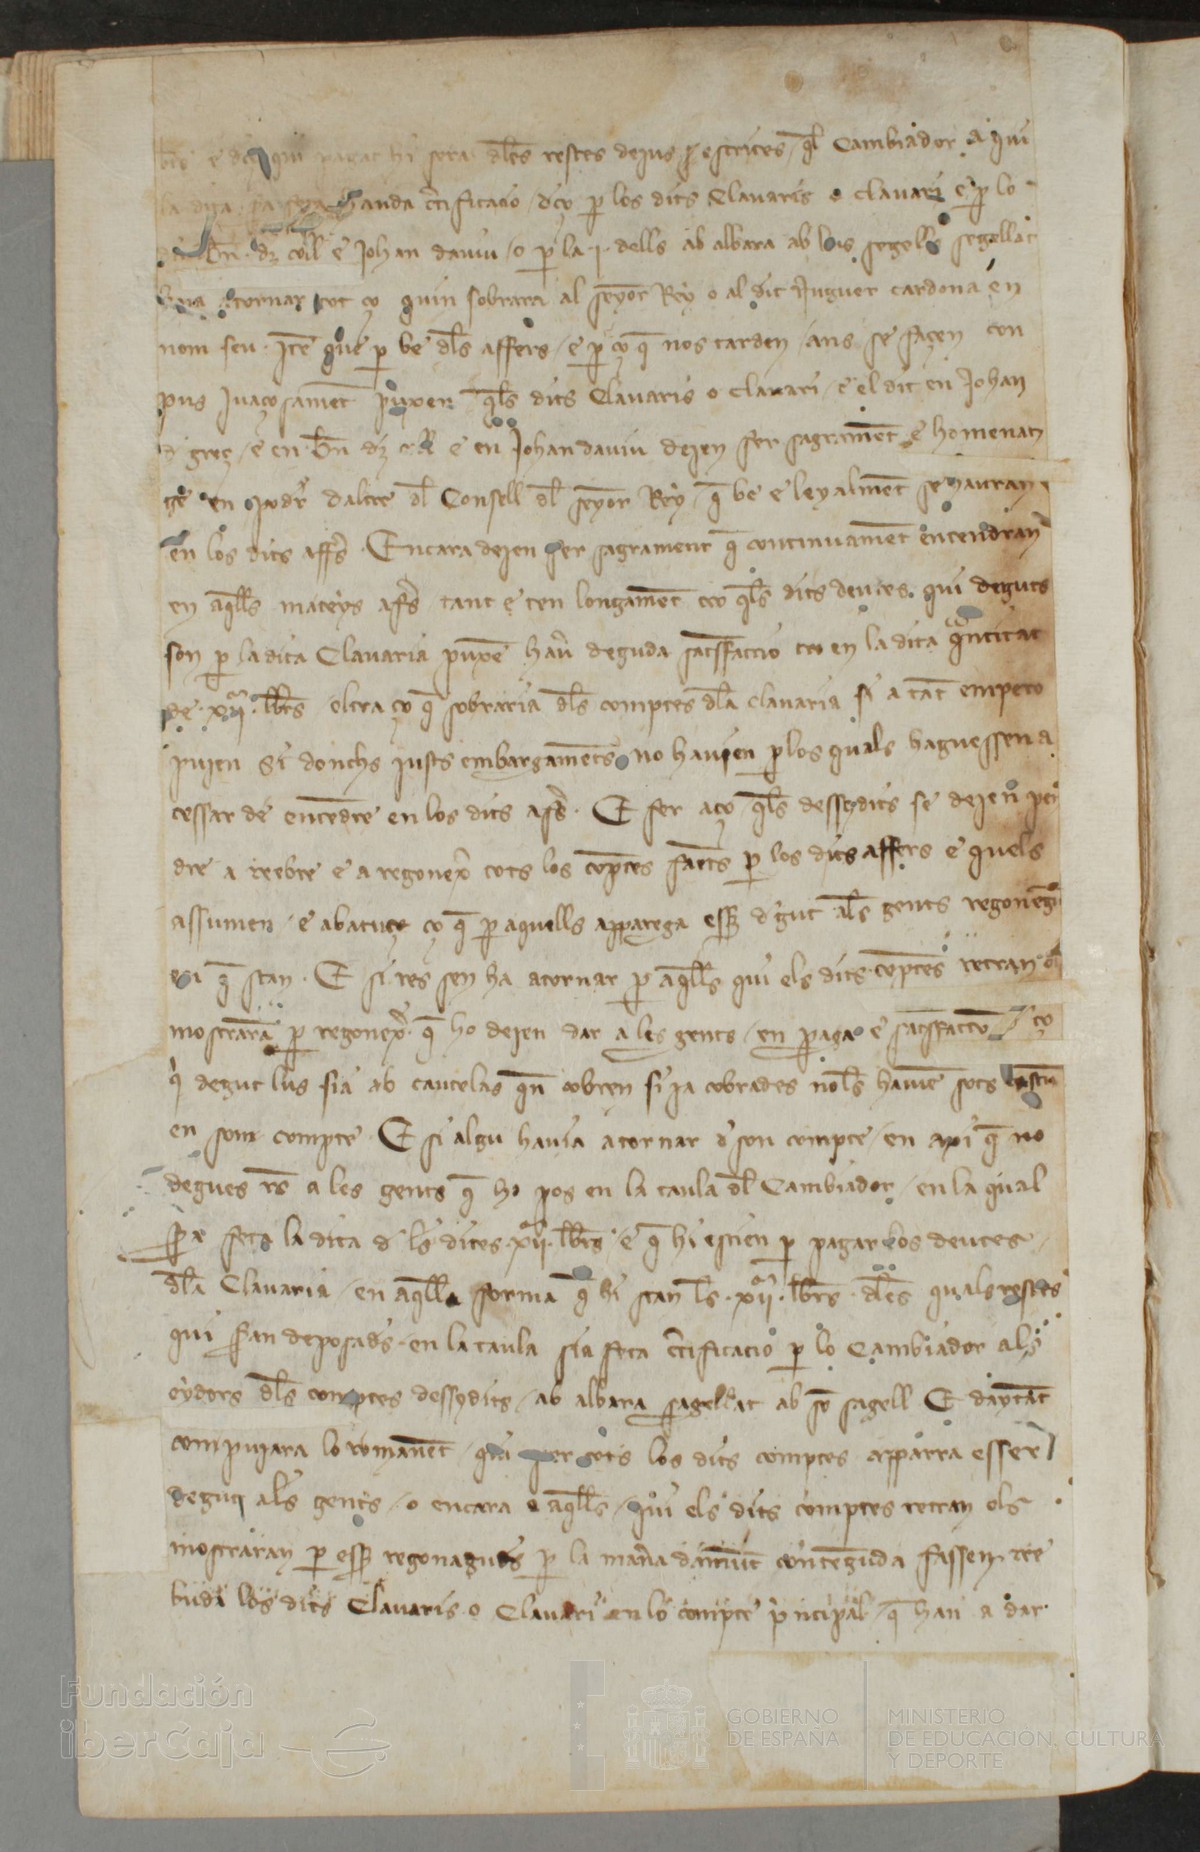 e deça qui pagat hi sera dls restes dejus escrites ql Cambiador a qui
la dita haianda ctificacio dço p los dits Clavaris o clavari e p lo
Bn dz coll e Johan daviu o p la .j. dells ab albara ab lurs segells segellat
haia atornar tot ço quin sobrara al senyor Rey o al dit Jnguer cardona en
nom seu. Ite que p be dls affers e p ço q nos tarden ans se façen con
pus ivaçosamet puxen qls dits Clavaris o clavari e el dit en Johan
d greç e en Bn dz coll e en Johan daviu dejen fer sagramet e homenat
ge en poder daltre dl Consell dl senyor Rey q be e leyalmet se hauran
en los dits affs Encara dejen fer sagrament q continuamet entendran
en aqlls mateys afs tant e ten longamet tro qls dits deutes qui deguts
son p la dita Clavaria puxe hav deguda satsfaccio tro en la dita qntitat
de xij lbrs oltra ço q sobraria dls comptes dla clavaria si a tat empero
pujen si donchs justs embargamets no havien p los quals haguessen a
cessar de entedre en los dits afs. E fer aço qls dessusdits se dejen pen
dre a reebre e a regonex tots los coptes faets p los dits affers e quels
assumen e abatuts ço q p aquells apparega ess dgut als gents regonega
exi q stan. E si res sen ha atornar p aqlls qui els dits coptes retran els
mostrara p regonex q ho dejen dar a les gents en paga e satsfaccio d ço
q degut lus sia ab cautelas qn cobren si ja cobrades nols havie sots
en som compte E si algu havia atornar d son compte en axi q no
degues rs a les gents q ho pos en la taula dl Cambiador en la qual
sera feta la dita d ls dites xij lbrs e q hi estien p pagar los deutes
dla Clavaria en aqlla forma q hi stan ls xij lbrs dles quals restes
qui seran deposads en la taula sia feta ctificacio p lo Cambiador als
oydors dls comptes dessusdits ab albara sagellat ab so sagell E daytat
com pujara lo romanet qui per tots los dits comptes apparra esser
degut als gents o encara a aqlls qui els dits comptes retran els
mostraran p ess regonaguds p la mana damut contenguda fassen ree
buda los dits Clavaris o Clavari en lo compte pncipal q han a dar
Fundación
iberCaja
GOBIERNO
DE ESPAÑA
MINISTERIO
DE EDUCACIÓN, CULTURA
Y DEPORTE